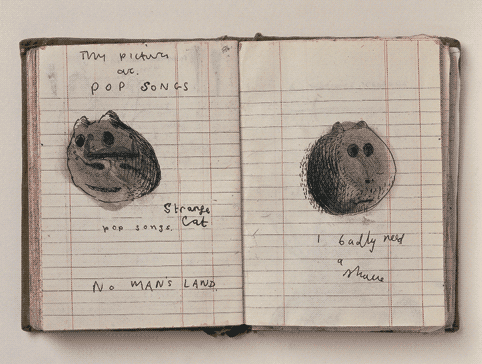 My pictures
are
POP SONGS
Strange
Cat
pop songs.
NO MAN'S LAND
I badly need
a
shave